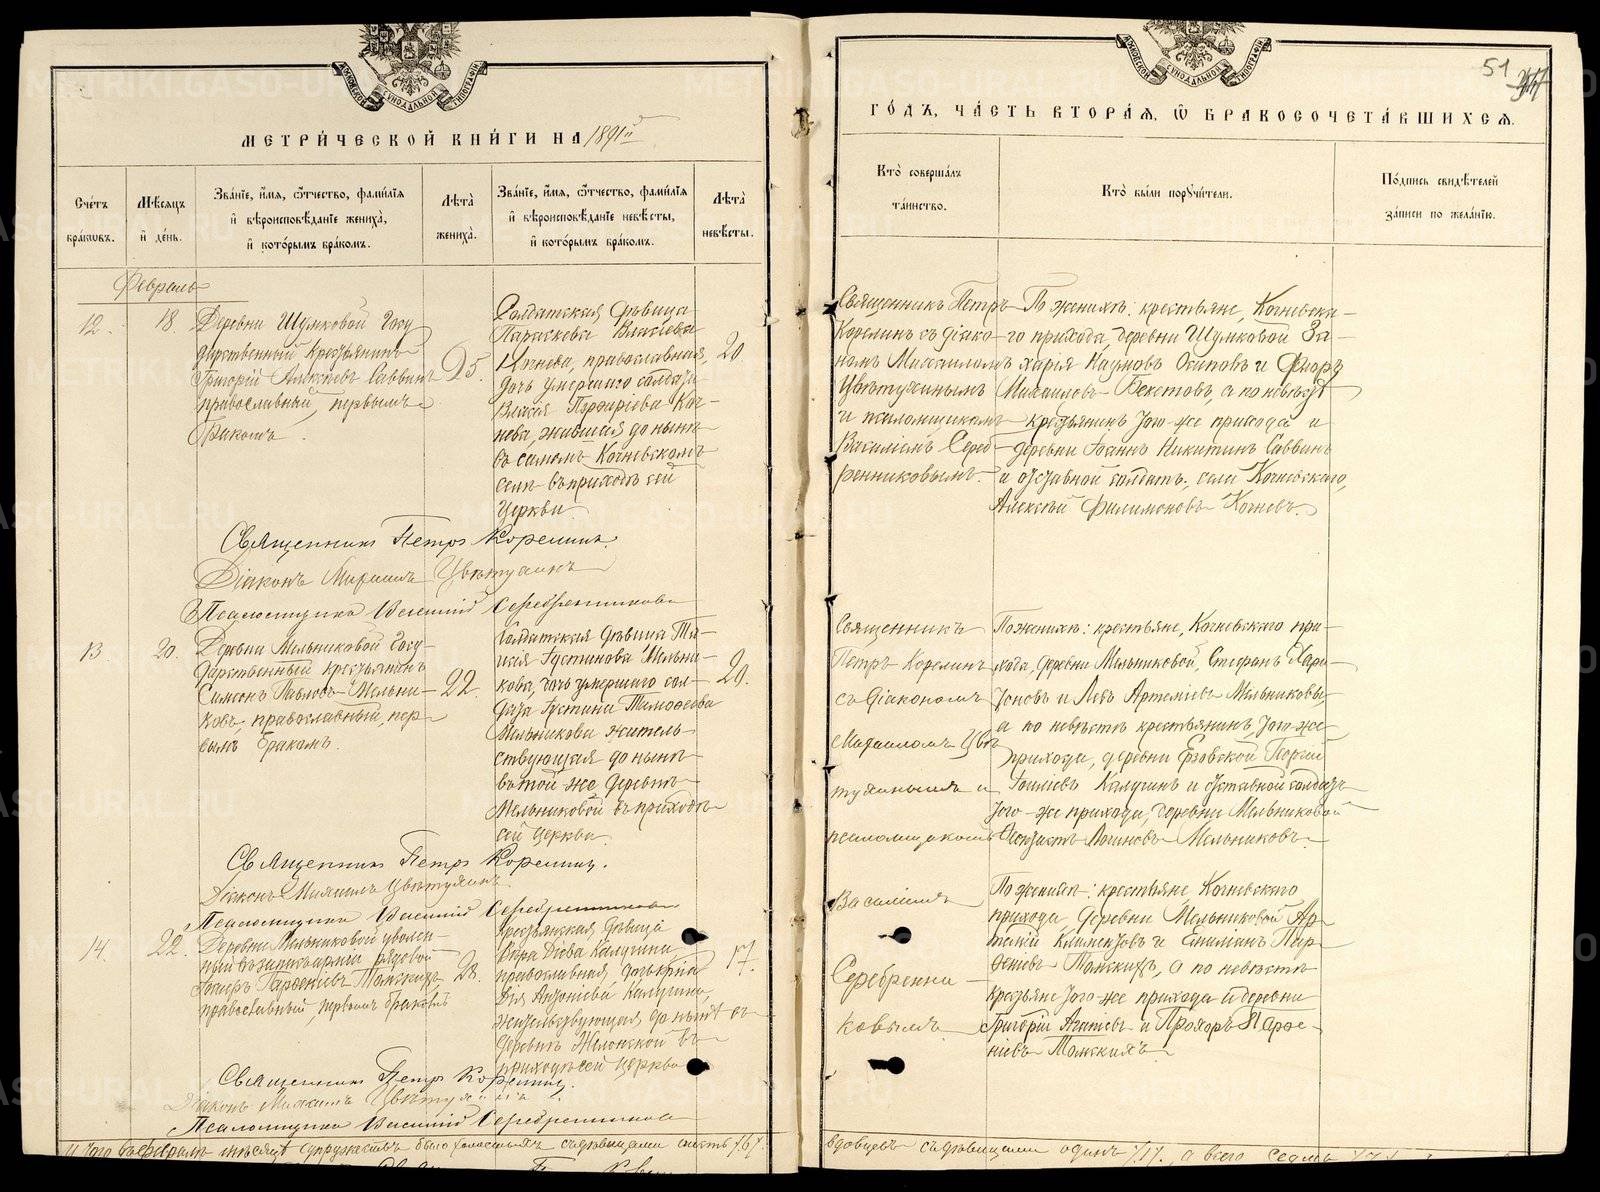 МЕТРИ́ЧЕСКОЙ КНИ́ГИ НА 1891й
Сче́тъ бра́кωвъ.
Мѣ́сяцъ и҆ де́нь.
Зва́нїе, и҆́мя, ѻ҆́тчество, фами́лїя и҆ вѣроисповѣ́данїе жениха̀, и҆ кото́рымъ бра́комъ.
Лѣ́та жениха̀.
Зва́нїе, и҆́мя, ѻ҆́тчество, фами́лїя и҆ вѣроисповѣ́данїе невѣ́сты, и҆ кото́рымъ бра́комъ.
Лѣ́та невѣ́сты.
Февраль
12.
18.
Деревни Шумковой Госу
дарственный крестьянинъ
Григорій Алексѣевъ Саввинъ
православный, первымъ
бракомъ.
25.
Солдатская дѣвица
Параскева Власіева
Кочнева, православная,
дочь умершаго солдата
Власія Коч-
нева, жившая до нынѣ
въ самомъ Кочневскомъ
селѣ въ приходѣ сей
Церкви
20
Священникъ Петръ Корелинъ.
Діаконъ Михаилъ Цвѣтухинъ
Псаломщикъ Василій Серебренниковъ
13.
20.
Деревни Мельниковой Госу-
дарственный крестьянинъ
Симеонъ Павловъ Мельни-
ковъ, православный, пер-
вымъ бракомъ.
22.
Солдатская дѣвица
Іустинова Мельни-
кова, дочь умершаго сол-
дата Іустина Тимофеева
Мельникова житель-
ствующая до нынѣ
въ той же деревнѣ
Мельниковой въ приходѣ
сей церкви.
20.
Священникъ Петръ Корелинъ.
Діаконъ Михаилъ Цвѣтухинъ
Псаломщикъ Василій Серебренниковъ
14.
22.
Деревни Мельниковой уволен-
ный въ запасъ арміи рядовой
Парфеніевъ Томскихъ,
православный, первымъ бракомъ
28.
крестьянская дѣвица
Вѣра Калугина
православная, дочь кр-на
Калугина,
жительствующая до нынѣ въ
деревнѣ въ
приходѣ сей церкви
17.
Священникъ Петръ Корелинъ.
Діаконъ Михаилъ Цвѣтухинъ
Псаломщикъ Василій Серебренниковъ
Итого въ февралѣ мѣсяцѣ супружествъ было холостыхъ съ дѣвицами шесть /6/.
51
ГО́ДЪ, ЧА́СТЬ ВТОРА́Я, Ѿ БРАКОСОЧЕТА́ВШИХСЯ.
Кто̀ соверша́лъ та́инство.
Кто̀ бы́ли порꙋчи́тели.
По́дпись свидѣ́телей за́писи по жела́нїю.
Священникъ Петръ
Корелинъ съ діако-
номъ Михаиломъ
Цвѣтухинымъ
и псаломщикомъ
Василіемъ Сереб-
ренниковымъ.
По женихѣ: крестьяне, Кочневска-
го прихода, деревни Шумковой За-
харія Наумовъ Осиповъ и Флоръ
Михаиловъ Бекетовъ, а по невѣстѣ
крестьянинъ того-же прихода и
деревни Іоаннъ Никитинъ Саввинъ
и отставной солдатъ, села Кочневскаго,
Алексѣй Филимоновъ Кочневъ.
Священникъ
Петръ Корелинъ
съ діакономъ
Михаиломъ Цвѣ-
тухинымъ и
псаломщикомъ
Василіемъ
Серебренни-
ковымъ
По женихѣ: крестьяне, Кочневскаго при-
хода, деревни Мельниковой, Стефанъ Хари-
тоновъ и Левъ Артеміевъ Мельниковы,
а по невѣстѣ крестьянинъ того-же
прихода, деревни
Калугинъ и отставной солдатъ
того-же прихода, деревни Мельниковой
Логиновъ Мельниковъ.
По женихѣ: крестьяне Кочневскаго
прихода деревни Мельниковой Ар-
темій Климентовъ и Емиліанъ Пар-
феніевъ Томскихъ, а по невѣстѣ
крестьяне того же прихода и деревни
Григорій и Прохоръ Парфе-
ніевъ Томскихъ.
вдовцевъ съ дѣвицами одинъ /1/, а всего семь /7/